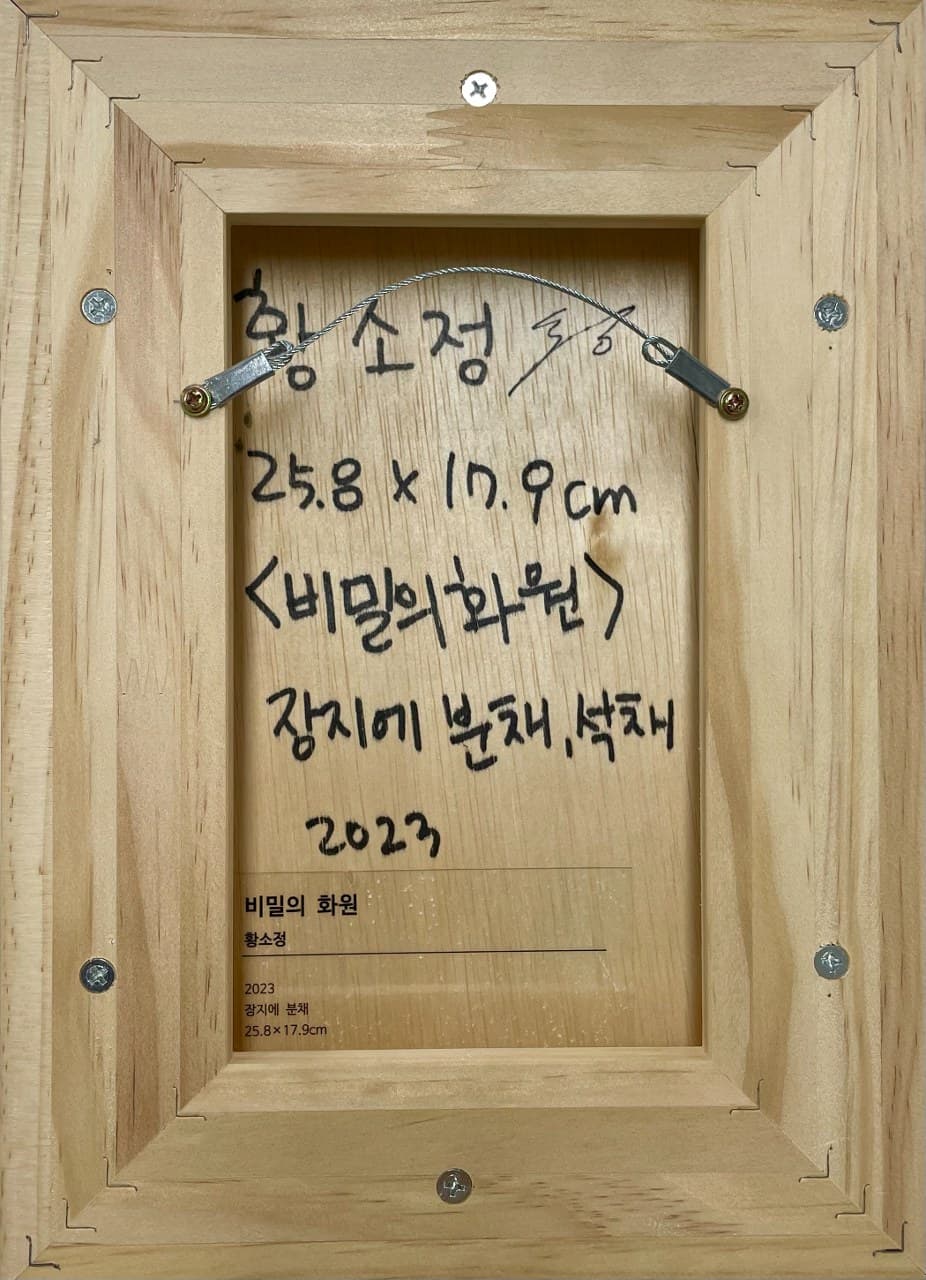 황소정
25.8 x 17.9cm
<비밀의화원>
장지에 분채,석채
2023
비밀의 화원
황소정
2023
장지에 분채
25.8×17.9cm